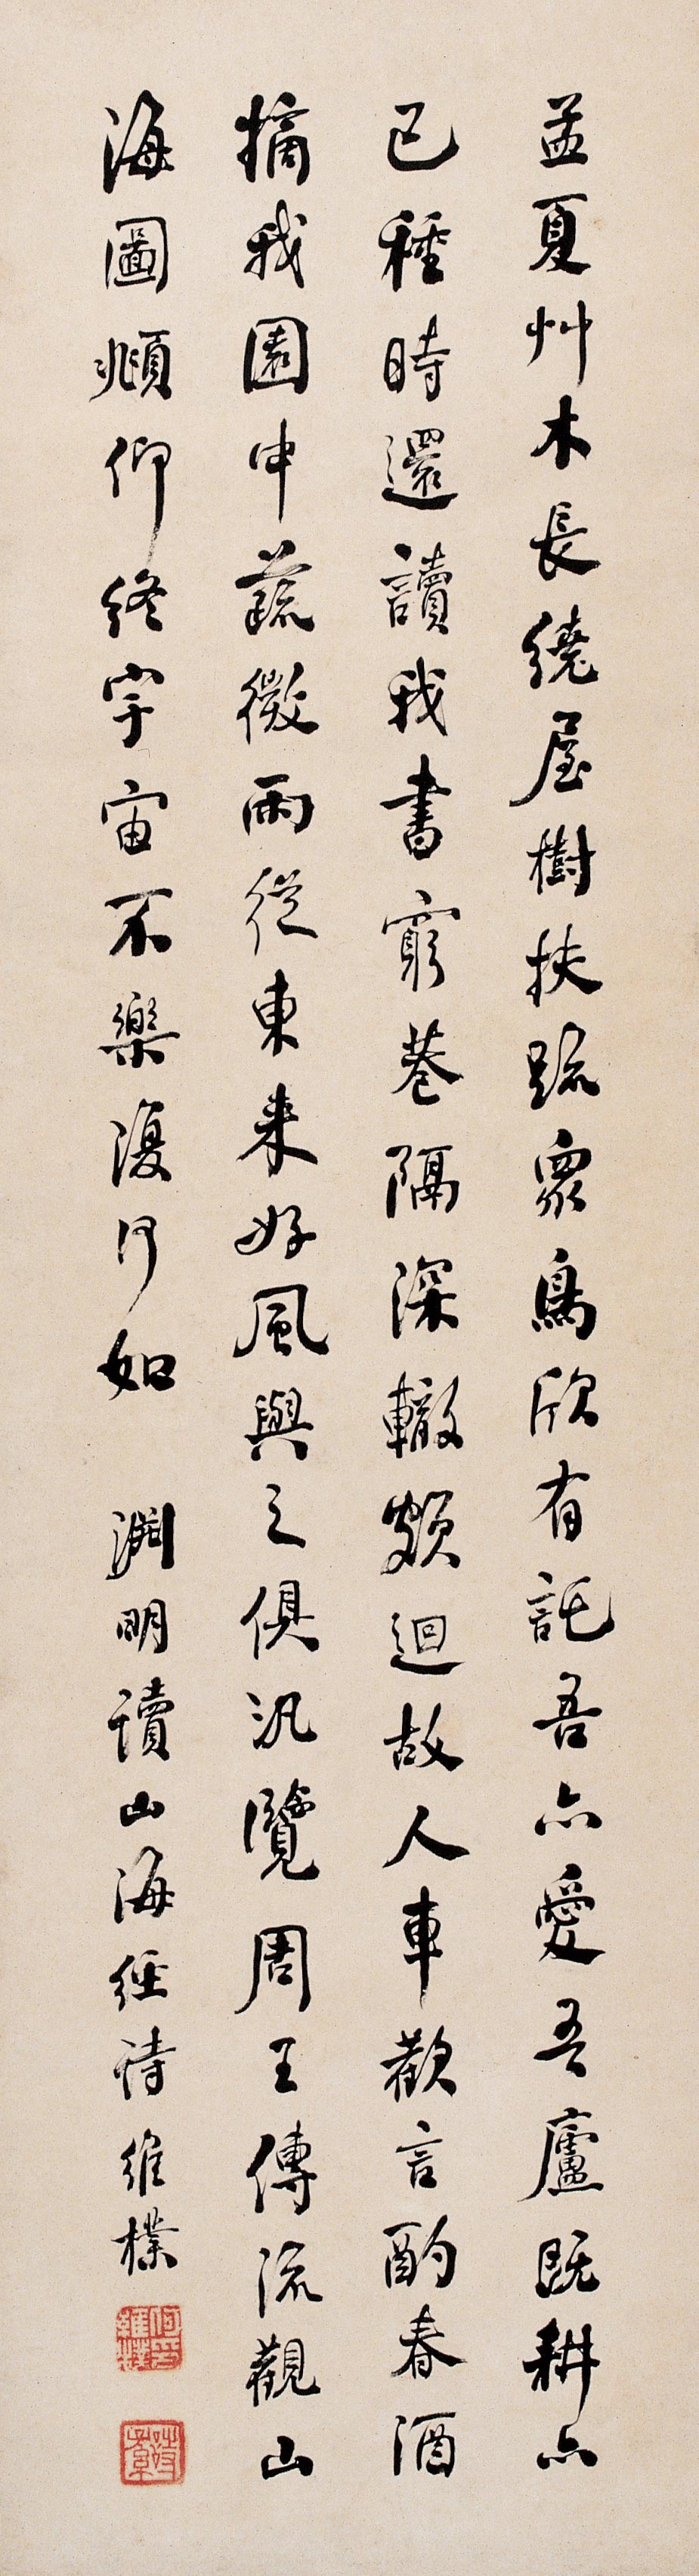 孟夏艸木長繞屋樹扶疏眾鳥欣有託吾亦愛吾廬既耕亦
已種時還讀我書窮巷隔深轍頗迴故人車歡言酌春酒
摘我園中蔬微雨從東來好風與之俱汎覽周王傳流觀山
海圖頫仰終宇宙不樂復何如 淵明讀山海經詩維樸
何印維樸